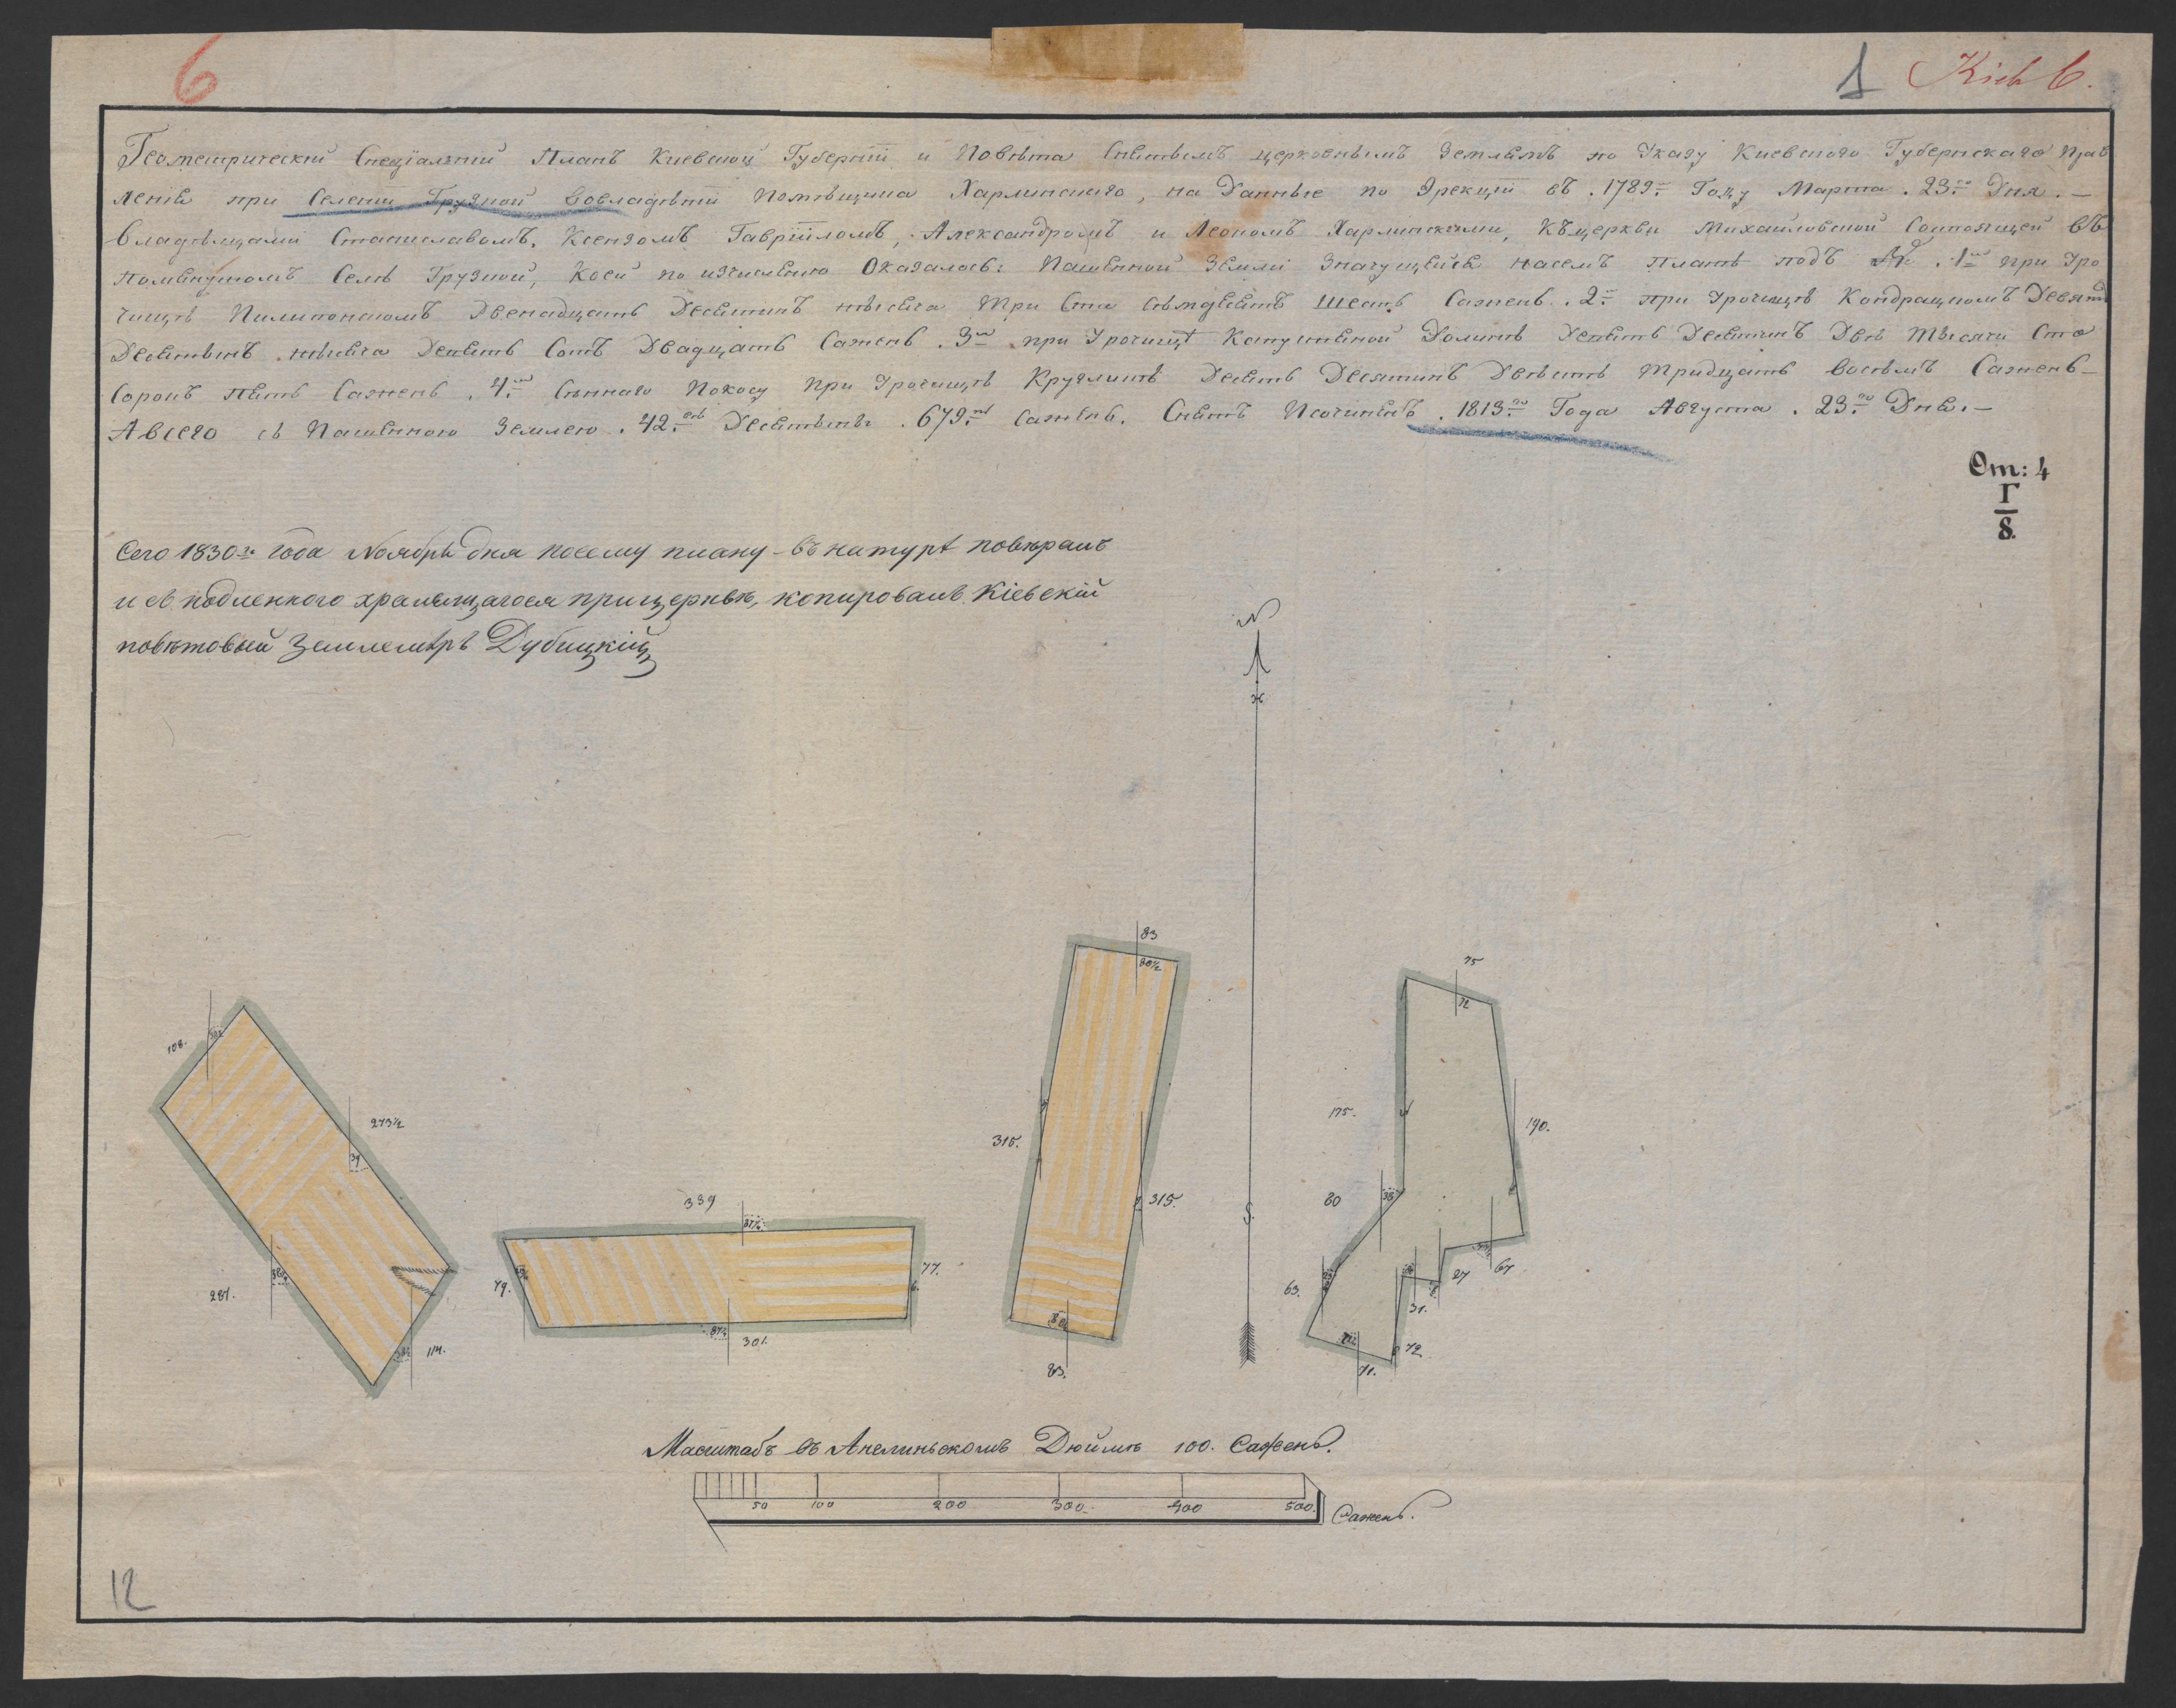 6
1 Кiев 6.
Геометрический Специальный Планъ Киевской Губернии и Повѣта Снятымъ церковнымъ Землямъ по Указу Киевского Губернскаго Прав
ления при Селении Грузкой вовладѣнии Помѣщика Харлинского, на Данные по Эрекции въ .1789:го Году Марта .23:го Дня. –
Владѣльцами Станиславомъ, Ксендзомъ Гаврииломъ, Александромъ и Леономъ Харлинскими, Къцеркви Михайловской Состоящей въ
помянутомъ Селѣ Грузкой, Коей по изчислению Оказалось: Пашенной Земли Значущейся насемъ планѣ подъ № .1м при Уро
чищѣ Пилипонскомъ Двенадцать Десятинъ тысяча Три Ста семдесятъ шесть Сажень .2:м при Урочищѣ Кондрацкомъ Девять
Десятинъ тысяча Девять Сотъ Двадцать Сажень .3м при Урочищѣ Капустяной Долинѣ Девять Десятинъ Двѣ Тысячи Сто
Сорокъ пять Сажень .4:м Сѣннаго Покосу при Урочищѣ Кругликѣ Десять Десятинъ Двѣсти Тридцать восемъ Сажень –
Авсего съ Пашенною Землею .42. Десятины .679. Сажень. Снятъ Исочиненъ .1813:го Года Августа .23:го Дня. –
От: 4
Г
8.
Сего 1830го года Ноября дня посему плану въ натурѣ повѣрялъ
и съ подленного хранящагося прицерквѣ, копировалъ Кіевскій
повѣтовый Землемѣръ Дубицкій
N
83
80½
75
72
108.
273½
39
315.
175.
190.
339
87¼
80
315.
S.
79.
77.
6.
281.
63.
27
67
31.
87¼
301.
114.
72
83.
71.
Масштабъ въ Англиньскомъ Дюймѣ 100. Сажень.
50 100 200 300. 400 500. Сажень.
12